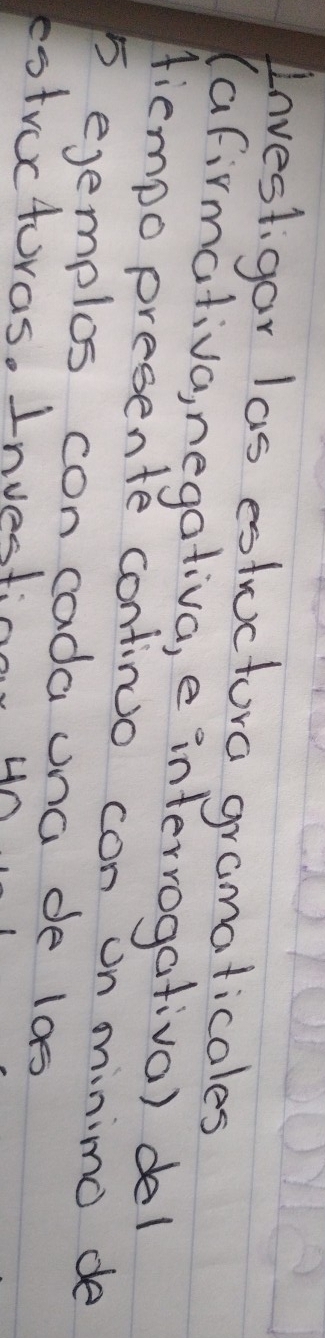 Investigar las estructura gramaticales
(afirmativa, negativa, e interrogativa) del
tiempo presente continuo con un minimo de
5 ejemplos con cada una de las
estructuras. Investigar 40